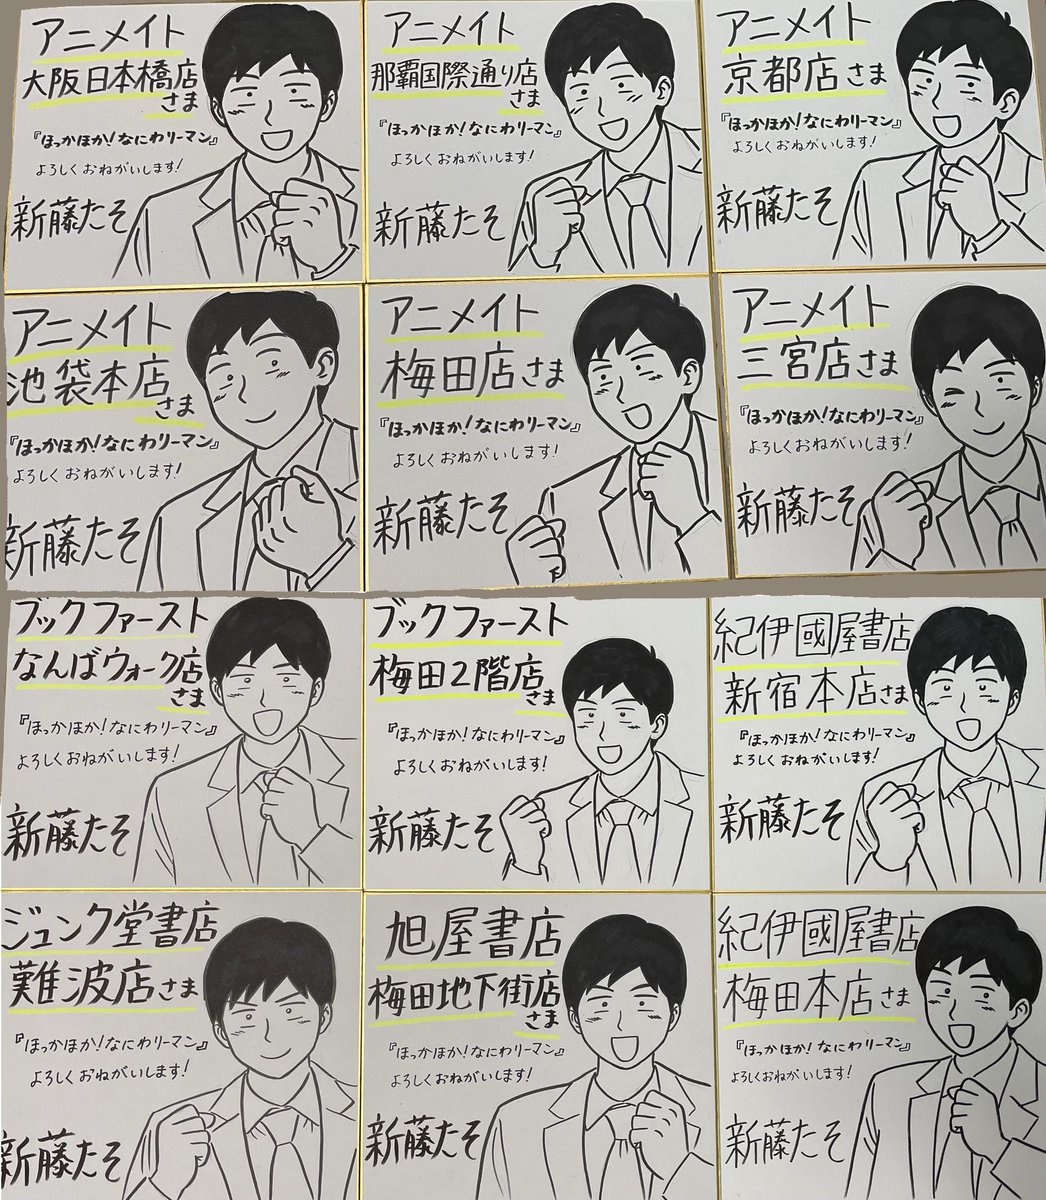 アニメイト
大阪日本橋店
さま
『ほっかほか!なにわリーマン』
よろしくおねがいします!
新藤たそ
アニメイト
那覇国際通り店
さま
『ほっかほか!なにわリーマン』
よろしくおねがいします!
新藤たそ
アニメイト
京都店さま
『ほっかほか!なにわリーマン』
よろしくおねがいします!
新藤たそ
アニメイト
池袋本店
さま
『ほっかほか!なにわリーマン』
よろしくおねがいします!
新藤たそ
アニメイト
梅田店さま
『ほっかほか!なにわリーマン』
よろしくおねがいします!
新藤たそ
アニメイト
三宮店さま
『ほっかほか!なにわリーマン』
よろしくおねがいします!
新藤たそ
ブックファースト
なんばウォーク店
さま
『ほっかほか!なにわリーマン』
よろしくおねがいします!
新藤たそ
ブックファースト
梅田2階店
さま
『ほっかほか!なにわリーマン』
よろしくおねがいします!
新藤たそ
紀伊國屋書店
新宿本店さま
『ほっかほか!なにわリーマン』
よろしくおねがいします!
新藤たそ
ジュンク堂書店
難波店さま
『ほっかほか!なにわリーマン』
よろしくおねがいします!
新藤たそ
旭屋書店
梅田地下街店
さま
『ほっかほか!なにわリーマン』
よろしくおねがいします!
新藤たそ
紀伊國屋書店
梅田本店さま
『ほっかほか!なにわリーマン』
よろしくおねがいします!
新藤たそ